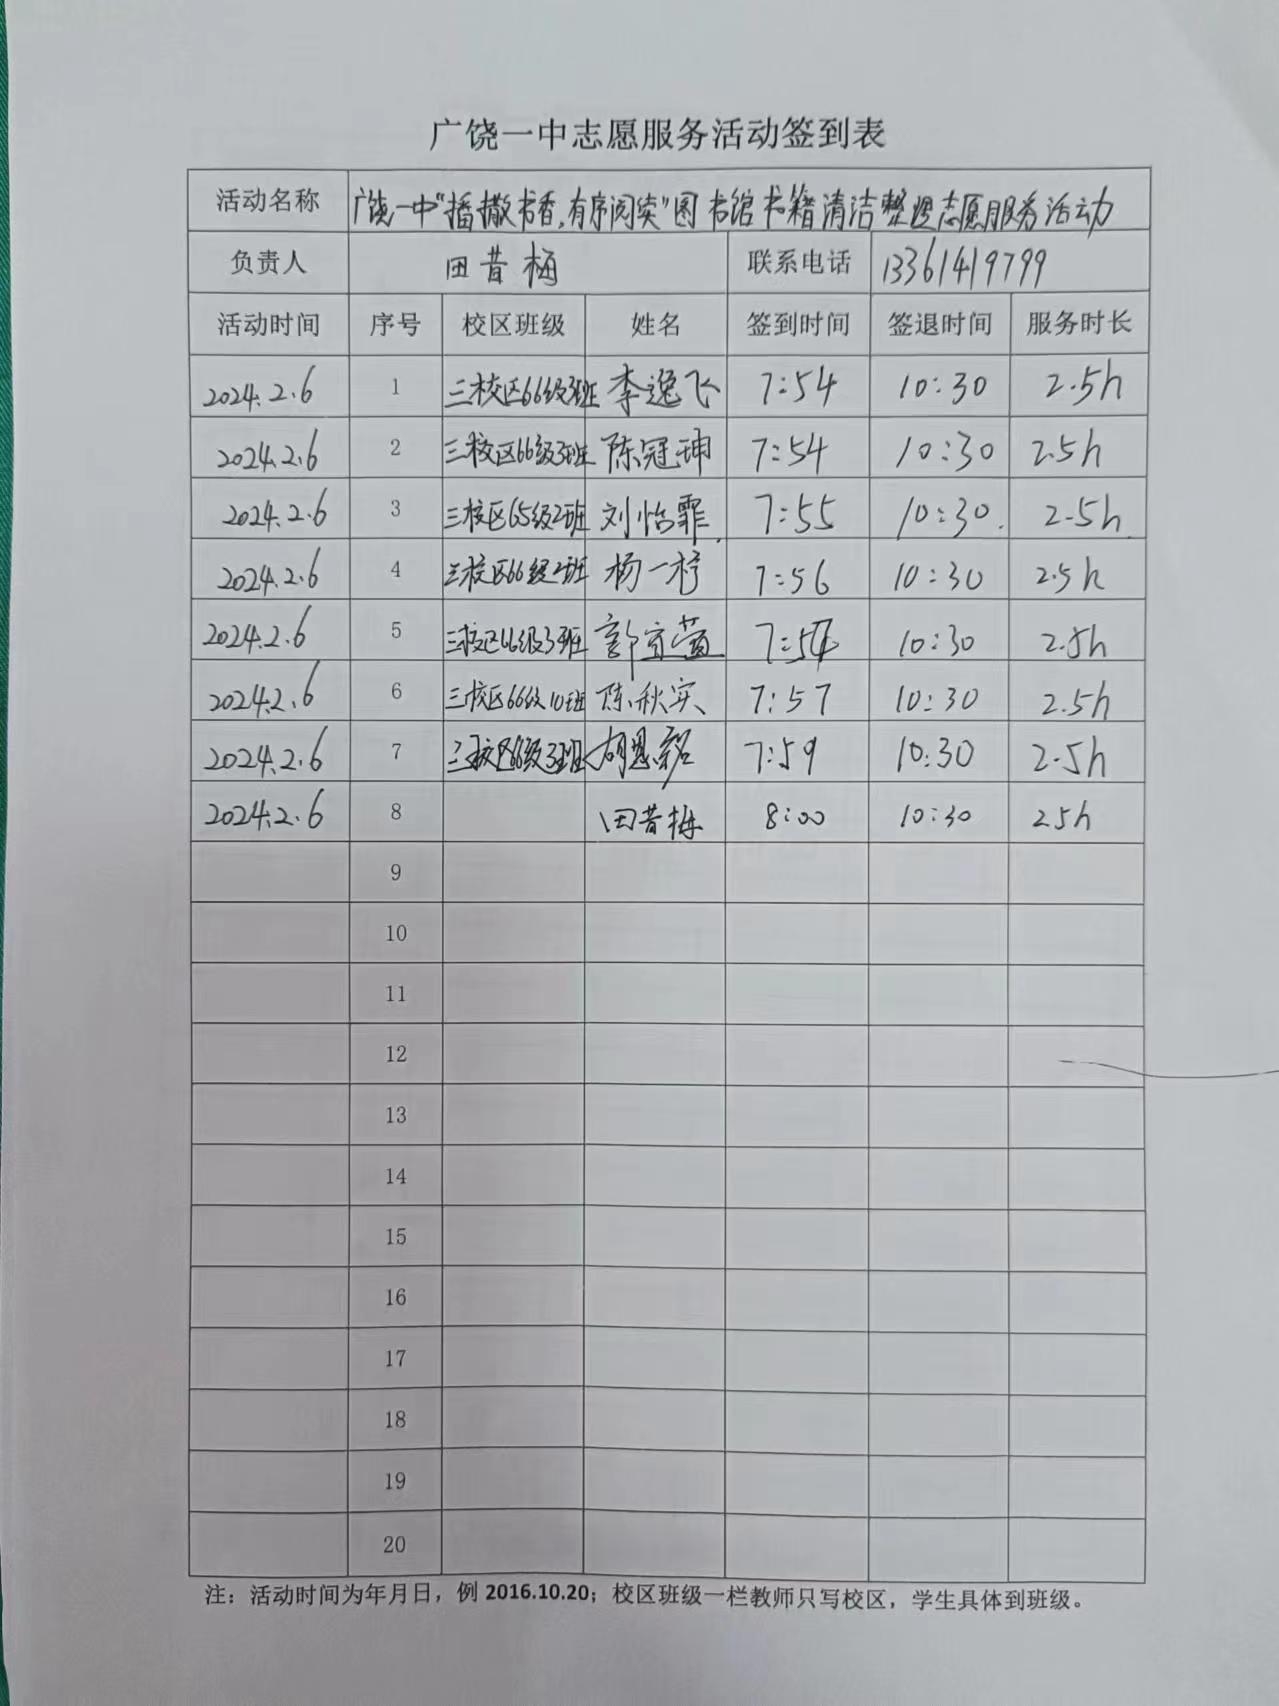 广饶一中志愿服务活动签到表
活动名称 广饶一中“播撒书香,有序阅读”图书馆书籍清洁整理志愿服务活动
负责人 田昔梅 联系电话 13361419799
活动时间 序号 校区班级 姓名 签到时间 签退时间 服务时长
2024.2.6 1 三校区66级3班 李逸飞 7:54 10:30 2.5h
2024.2.6 2 三校区66级3班 陈冠珅 7:54 10:30 2.5h
2024.2.6 3 三校区65级2班 刘怡霏 7:55 10:30 2.5h
2024.2.6 4 三校区66级2班 杨一柠 7:56 10:30 2.5h
2024.2.6 5 三校区66级3班 郭宜萱 10:30 2.5h
2024.2.6 6 三校区66级10班 陈秋实 7:57 10:30 2.5h
2024.2.6 7 三校区66级3班 7:59 10:30 2.5h
2024.2.6 8 田昔梅 8:00 10:30 2.5h
9
10
11
12
13
14
15
16
17
18
19
20
注：活动时间为年月日，例 2016.10.20；校区班级一栏教师只写校区，学生具体到班级。